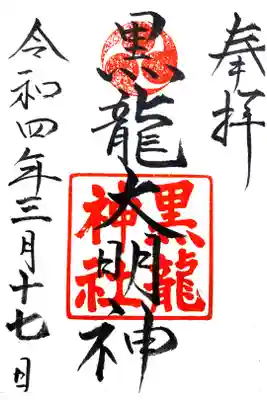 奉拝
黒龍大明神
黒龍
神社
令和四年三月十七日